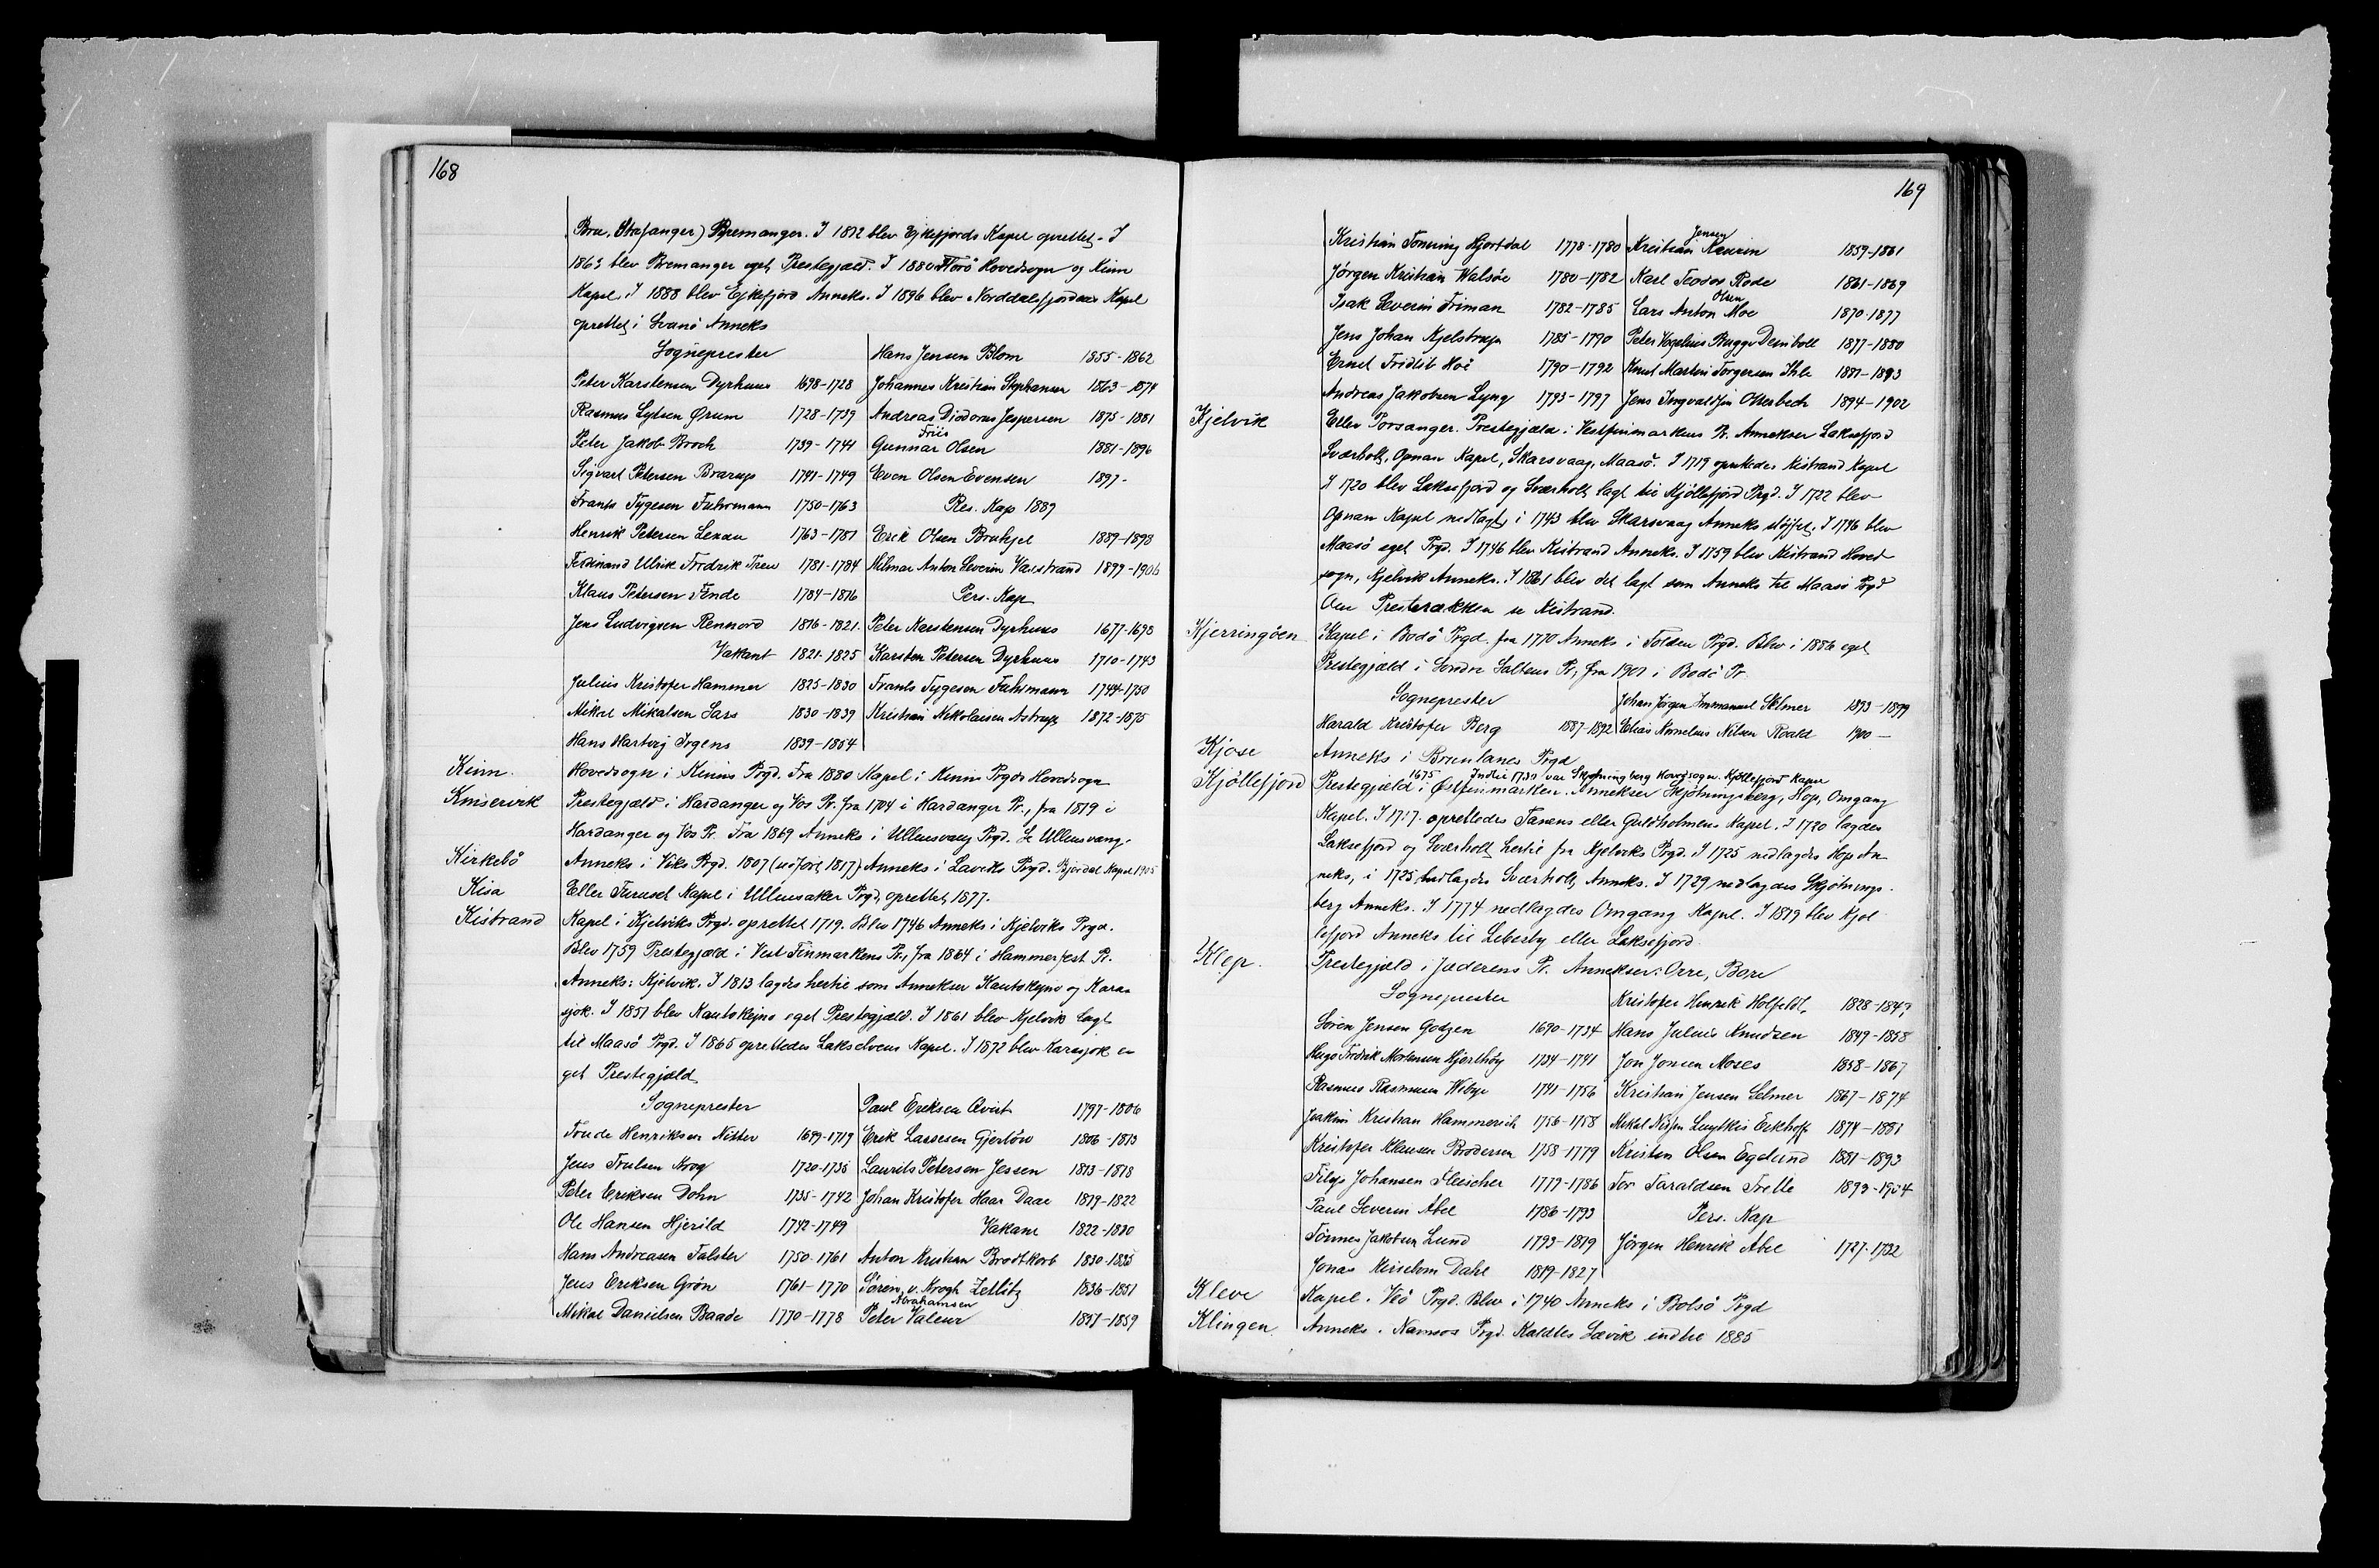 168
Bru, Stafanger) Bremanger. I 1812 blev Ejkefjords Kapel oprettet. I
1863 blev Bremanger eget Prestegjæld. I 1880 Florö Hovedsogn og Kinn
Kapel. I 1888 blev Ejkefjord Anneks. I 1896 blev Norddalsfjordens Kapel
oprettet i Svanö Anneks
Sogneprester
Peter Karstensen Dyrhuus 1698-1728
Rasmus Lydsen Ørum 1728-1739
Peter Jakob Broch 1739-1741
Sigvart Petersen Brarup 1741-1749
Frants Tygesen Fuhrmann 1750-1763
Henrik Petersen Lexau 1763-1781
Ferdinand Ulrik Fredrik Tren 1781-1784
Klaus Petersen Finde 1784-1816
Jens Ludvigsen Rennord 1816-1821.
Vakant 1821-1825
Julius Kristofer Hammer 1825-1830
Mikal Mikalsen Sars 1830-1839
Hans Hartvig Irgens 1839-1854
Hans Jensen Blom 1855-1862
Johannes Kristian Stephansen 1863-1874
Andreas Diodorus Jespersen 1875-1881
Friis
Gunnar Olsen 1881-1896
Even Olsen Evensen 1897-
Res. Kap 1889
Erik Olsen Bruhjel 1889-1898
Hilmar Anton Severin Varstrand 1899-1906
Pers. Kap
Peter Karstensen Dyrhuus 1677-1698
Karsten Petersen Dyrhuus 1710-1743
Frants Tygesen Fuhrmann 1744-1750
Kristian Nikolaisen Astrup 1872-1875
Kinn. Hovedsogn i Kinns Prgd. Fra 1880 Kapel i Kinns Prgds Hovedsogn
Kinservik Prestegjæld i Hardanger og Vos Pr. fra 1704 i Hardanger Pr., fra 1819 i
Hardanger og Vos Pr. Fra 1869 Anneks i Ullensvang Prgd. Se Ullensvang.
Kirkebö Anneks i Viks Prgd. 1807 (udført 1817) Anneks i Laviks Prgd. Bjordal Kapel 1905
Kisa Eller Furuset Kapel i Ullensaker Prgd, oprettet 1877.
Kistrand Kapel i Kjelviks Prgd. oprettet 1719. Blev 1746 Anneks i Kjelviks Prgd.
Blev 1759 Prestegjæld i Vest Finmarkens Pr., fra 1864 i Hammerfest Pr.
Anneks: Kjelvik. I 1813 lagdes hertil som Annekser Kautokejno og Karas
sjok. I 1851 blev Kautokejno eget Prestegjæld. I 1861 blev Kjelvik lagt
til Maasö Prgd. I 1865 oprettedes Lakselvens Kapel. I 1872 blev Karasjok e
get Prestegjæld
Sogneprester
Trude Henriksen Nitter 1699-1719
Jens Trulsen Krog 1720-1735
Peter Eriksen Dohn 1735-1742
Ole Hansen Hjerild 1742-1749
Hans Andreasen Falster 1750-1761
Jens Eriksen Grön 1761-1770
Mikal Danielsen Baade 1770-1778
Paul Eriksen Qvist 1797-1806
Erik Lassesen Gjerlöw 1806-1813
Laurits Petersen Jessen 1813-1818
Johan Kristofer Haar Daae 1819-1822
Vakant 1822-1830
Anton Kristian Brodtkorb 1830-1835
Sören v. Krogh Zetlitz 1836-1851
Abrahamsen
Peter Valeur 1851-1859
169
Kristian Tonning Hjortdal 1778-1780
Jörgen Kristian Walsöe 1780-1782
Isak Severin Friman 1782-1785
Jens Johan Kjelstrup 1785-1790
Ernst Fridlib Hoë 1790-1792
Andreas Jakobsen Lyng 1793-1797
Jensen
Kristian Kaurin 1859-1861
Karl Teodor Rode 1861-1869
Olsen
Lars Anton Moe 1870-1877
Peter Vogelius Bugge Deinboll 1877-1880
Knut Martin Torgersen Ihle 1881-1893
Jens Ingvaldsen Otterbech 1894-1902
Kjelvik Eller Porsanger. Prestegjæld i Vestfinmarkens Pr. Annekser Laksefjord
Sværholt, Opnan Kapel, Skarsvaag, Maasö. I 1719 oprettedes Kistrand Kapel
I 1720 blev Laksefjord og Sværholt lagt til Kjöllefjord Prgd. I 1722 blev
Opnan Kapel nedlagt, i 1743 blev Skarsvaag Anneks slöjfet. I 1746 blev
Maasö eget Prgd. I 1746 blev Kistrand Anneks. I 1759 blev Kistrand Hoved
sogn, Kjelvik Anneks. I 1861 blev det lagt som Anneks til Maasö Prgd
Om Presterækken se Kistrand.
Kjerringöen Kapel i Bodö Prgd. fra 1770 Anneks i Folden Prgd. Blev i 1886 eget
Prestegjæld i Sondre Saltens Pr., fra 1901 i Bodö Pr.
Sogneprester
Harald Kristofer Berg 1887-1892
Johan Jörgen Immanuel Selmer 1893-1899
Elias Kornelius Nilsen Roald 1900-
Kjose Anneks i Brunlanes Prgd
1675 Indtil 1731 var Skjötningberg Hovedsogn. Kjöllefjord Kapel
Kjöllefjord Prestegjæld i Østfinmarken. Annekser Skjötningsberg, Hop, Omgang
Kapel. I 1717 oprettedes Tanens eller Guldholmens Kapel. I 1720 lagdes
Laksefjord og Sværholt hertil fra Kjelviks Prgd. I 1725 nedlagdes Hops An
neks, i 1725 nedlagdes Sværholt Anneks. I 1729 nedlagdes Skjötnings-
berg Anneks. I 1774 nedlagdes Omgang Kapel. I 1819 blev Kjöl
lefjord Anneks til Lebesby eller Laksefjord.
Klep. Prestegjæld i Jæderens Pr. Annekser: Orre, Bore
Sogneprester
Sören Jensen Godzen 1690-1734
Hugo Fredrik Mortensen Hjorthöy 1734-1741
Rasmus Rasmusen Wibye 1741-1756
Joakim Kristian Hammerich 1756-1758
Kristofer Klausen Brodersen 1758-1779
Filip Johansen Fleischer 1779-1786
Paul Severin Abel 1786-1793
Tönnes Jakobsen Lund 1793-1819
Jonas Kirsebom Dahl 1819-1827
Kristofer Henrik Holfeldt 1828-1847
Hans Julius Knudzen 1849-1858
Jon Jonsen Moses 1858-1867
Kristian Jensen Selmer 1867-1874
Mikal Nilsen Luytkis Eckhoff 1874-1881
Kristen Olsen Egelund 1881-1893
Tor Taraldsen Trelle 1893-1904
Pers. Kap
Jörgen Henrik Abel 1727-1732
Kleve Kapel i Veö Prgd. Blev i 1740 Anneks i Bolsö Prgd
Klingen Anneks i Namsos Prgd. Kaldtes Sævik indtil 1885